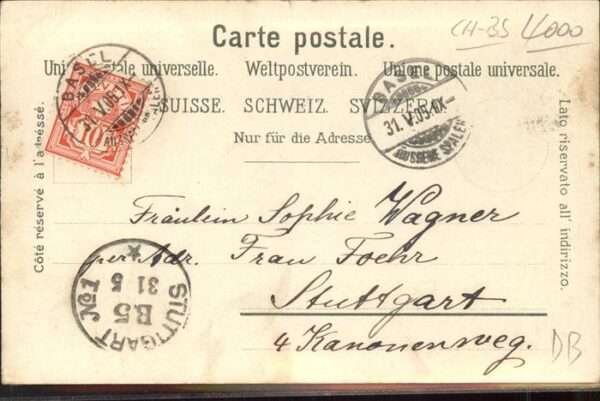 CH-BS 4000
Carte postale.
Union postale universelle. Weltpostverein. Unione postale universale.
SUISSE. SCHWEIZ. SVIZZERA.
Nur für die Adresse
Côté réservé à l'adresse.
Lato riservato all' indirizzo.
BASEL
31.V.05
10
BASEL
31.V.05.IX-
AEUSSERE SPALEN
Fräulein Sophie Wagner
per Adr. Frau Foehr
Stuttgart
4 Kanonenweg.
STUTTGART No 1
B5
31 5
DB